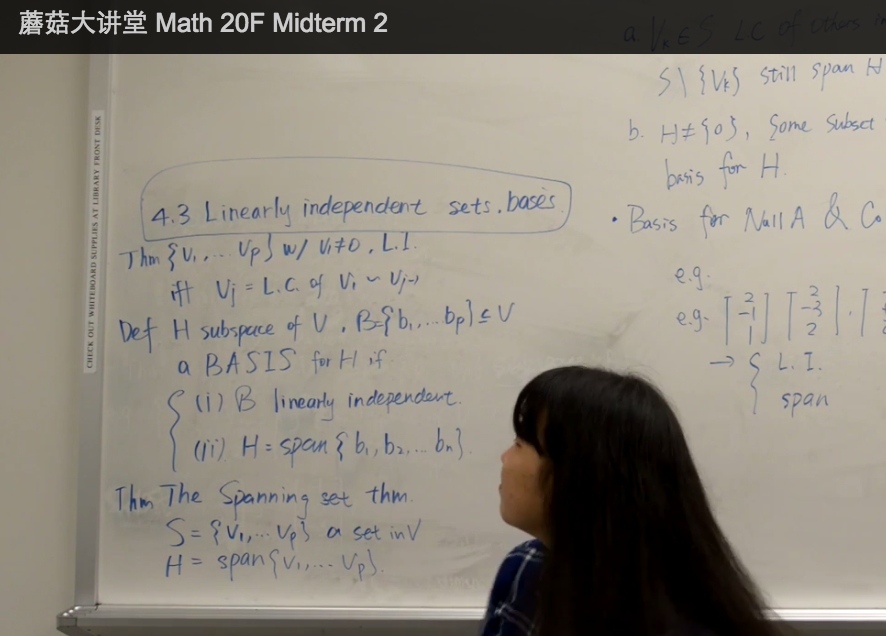 蘑菇大讲堂 Math 20F Midterm 2
CHECK OUT WHITEBOARD SUPPLIES AT LIBRARY FRONT DESK
4.3 Linearly independent sets. bases.
Thm {V₁, ... Vp} w/ V₁≠0, L.I.
iff Vj = L.C. of V₁ ~ Vj-1
Def H subspace of V. B={b₁,... bp}⊆V
a BASIS for H if
(i) B linearly independent.
(ii) H = span{b₁, b₂,... bn}.
Thm The Spanning set thm.
S = {V₁,... Vp} a set in V
H = span{V₁,... Vp}.
a. Vk ∈ S LC of others
S\{Vk} still span H
b. H≠{0}, Some subset
basis for H.
• Basis for Null A & Co
e.g.
e.g. [2 -1 1] [2 -3 2].
→ { L.I.
span